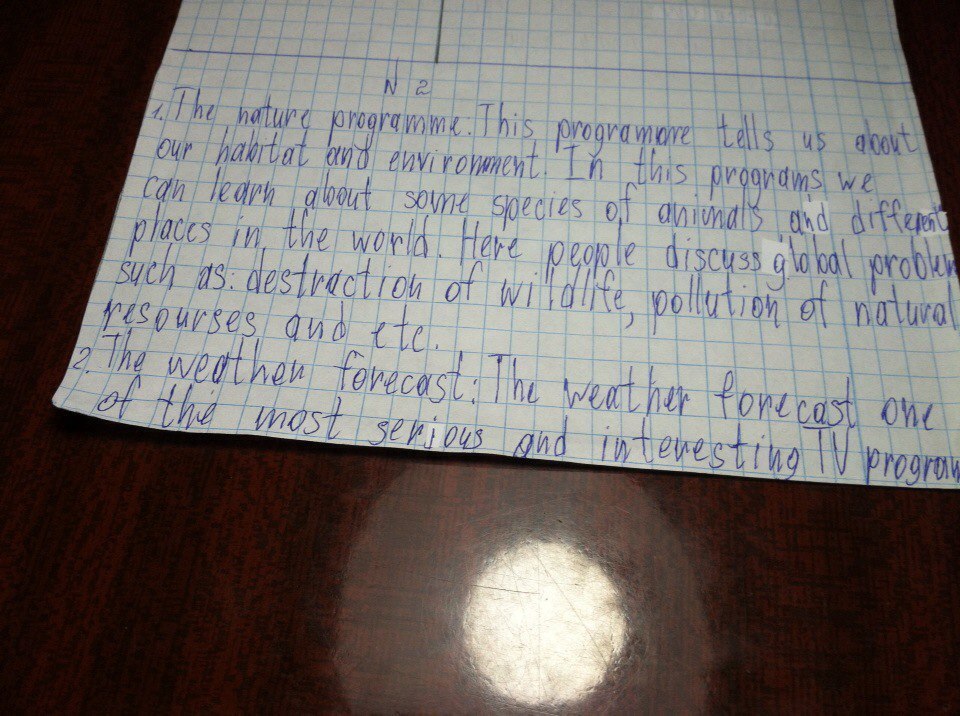 N 2
1. The nature programme. This programme tells us about
our habitat and environment. In this programs we
can learn about some species of animals and different
places in the world. Here people discuss global problem
such as: destraction of wildlife, pollution of natural
resourses and etc.
2. The weather forecast: The weather forecast one
of the most serious and interesting TV program